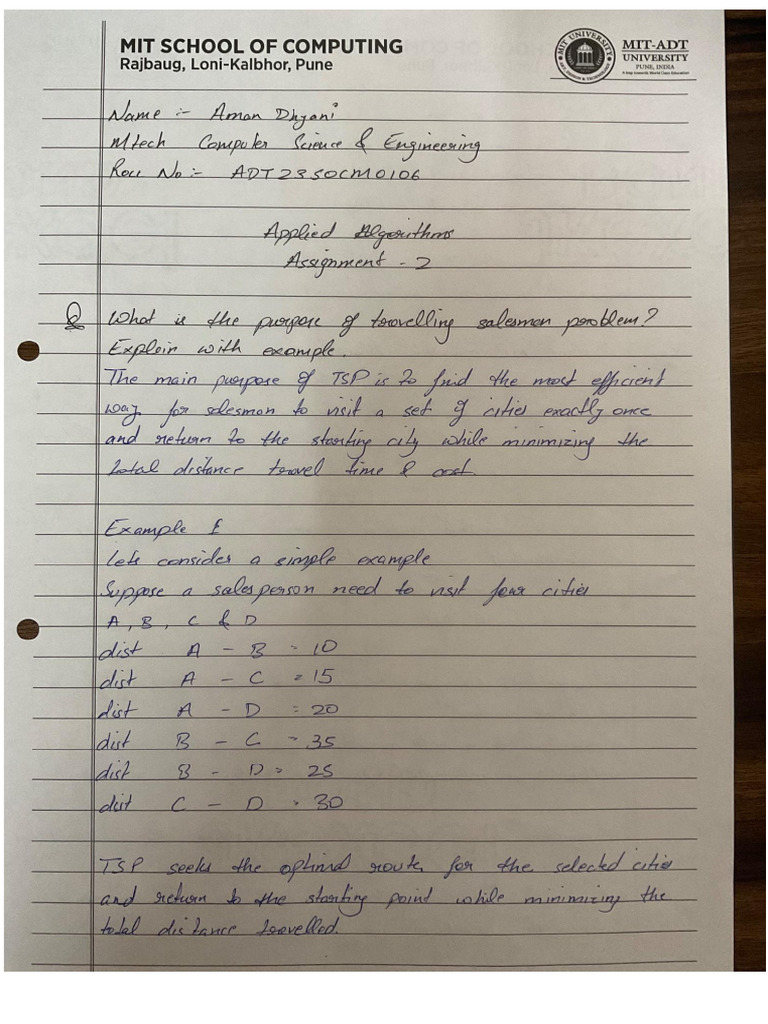 MIT SCHOOL OF COMPUTING
Rajbaug, Loni-Kalbhor, Pune
MIT UNIVERSITY
MIT-ADT
UNIVERSITY
PUNE, INDIA
A leap towards World Class Education
Name :- Aman Dhyani
Mtech Computer Science & Engineering
Roll No :- ADT23SOCM0106
Applied Algorithms
Assignment - 2
Q What is the purpose of travelling salesman problem?
Explain with example.
The main purpose of TSP is to find the most efficient
way for salesman to visit a set of cities exactly once
and return to the starting city while minimizing the
total distance travel time & cost.
Example
Lets consider a simple example
Suppose a salesperson need to visit four cities
A, B, C & D
dist A - B = 10
dist A - C = 15
dist A - D = 20
dist B - C = 35
dist B - D = 25
dist C - D = 30
TSP seeks the optimal route for the selected cities
and return to the starting point while minimizing the
total distance travelled.